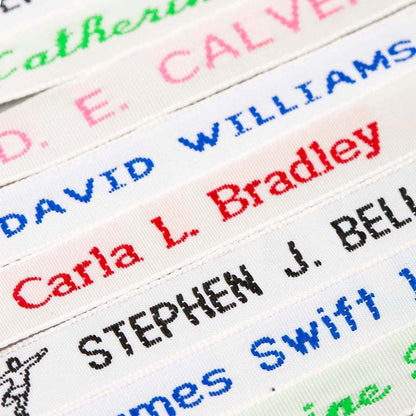 Catherin
D. E. CALVER
DAVID WILLIAMS
Carla L. Bradley
STEPHEN J. BELL
mes Swift